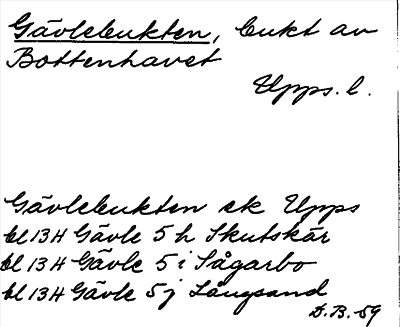 Gävlebukten, bukt av
Bottenhavet
Upps. l.
Gävlebukten ek Upps
bl 13H Gävle 5 h Skutskär
bl 13H Gävle 5 i Sågarbo
bl 13H Gävle 5j Långsand
D.B.-59